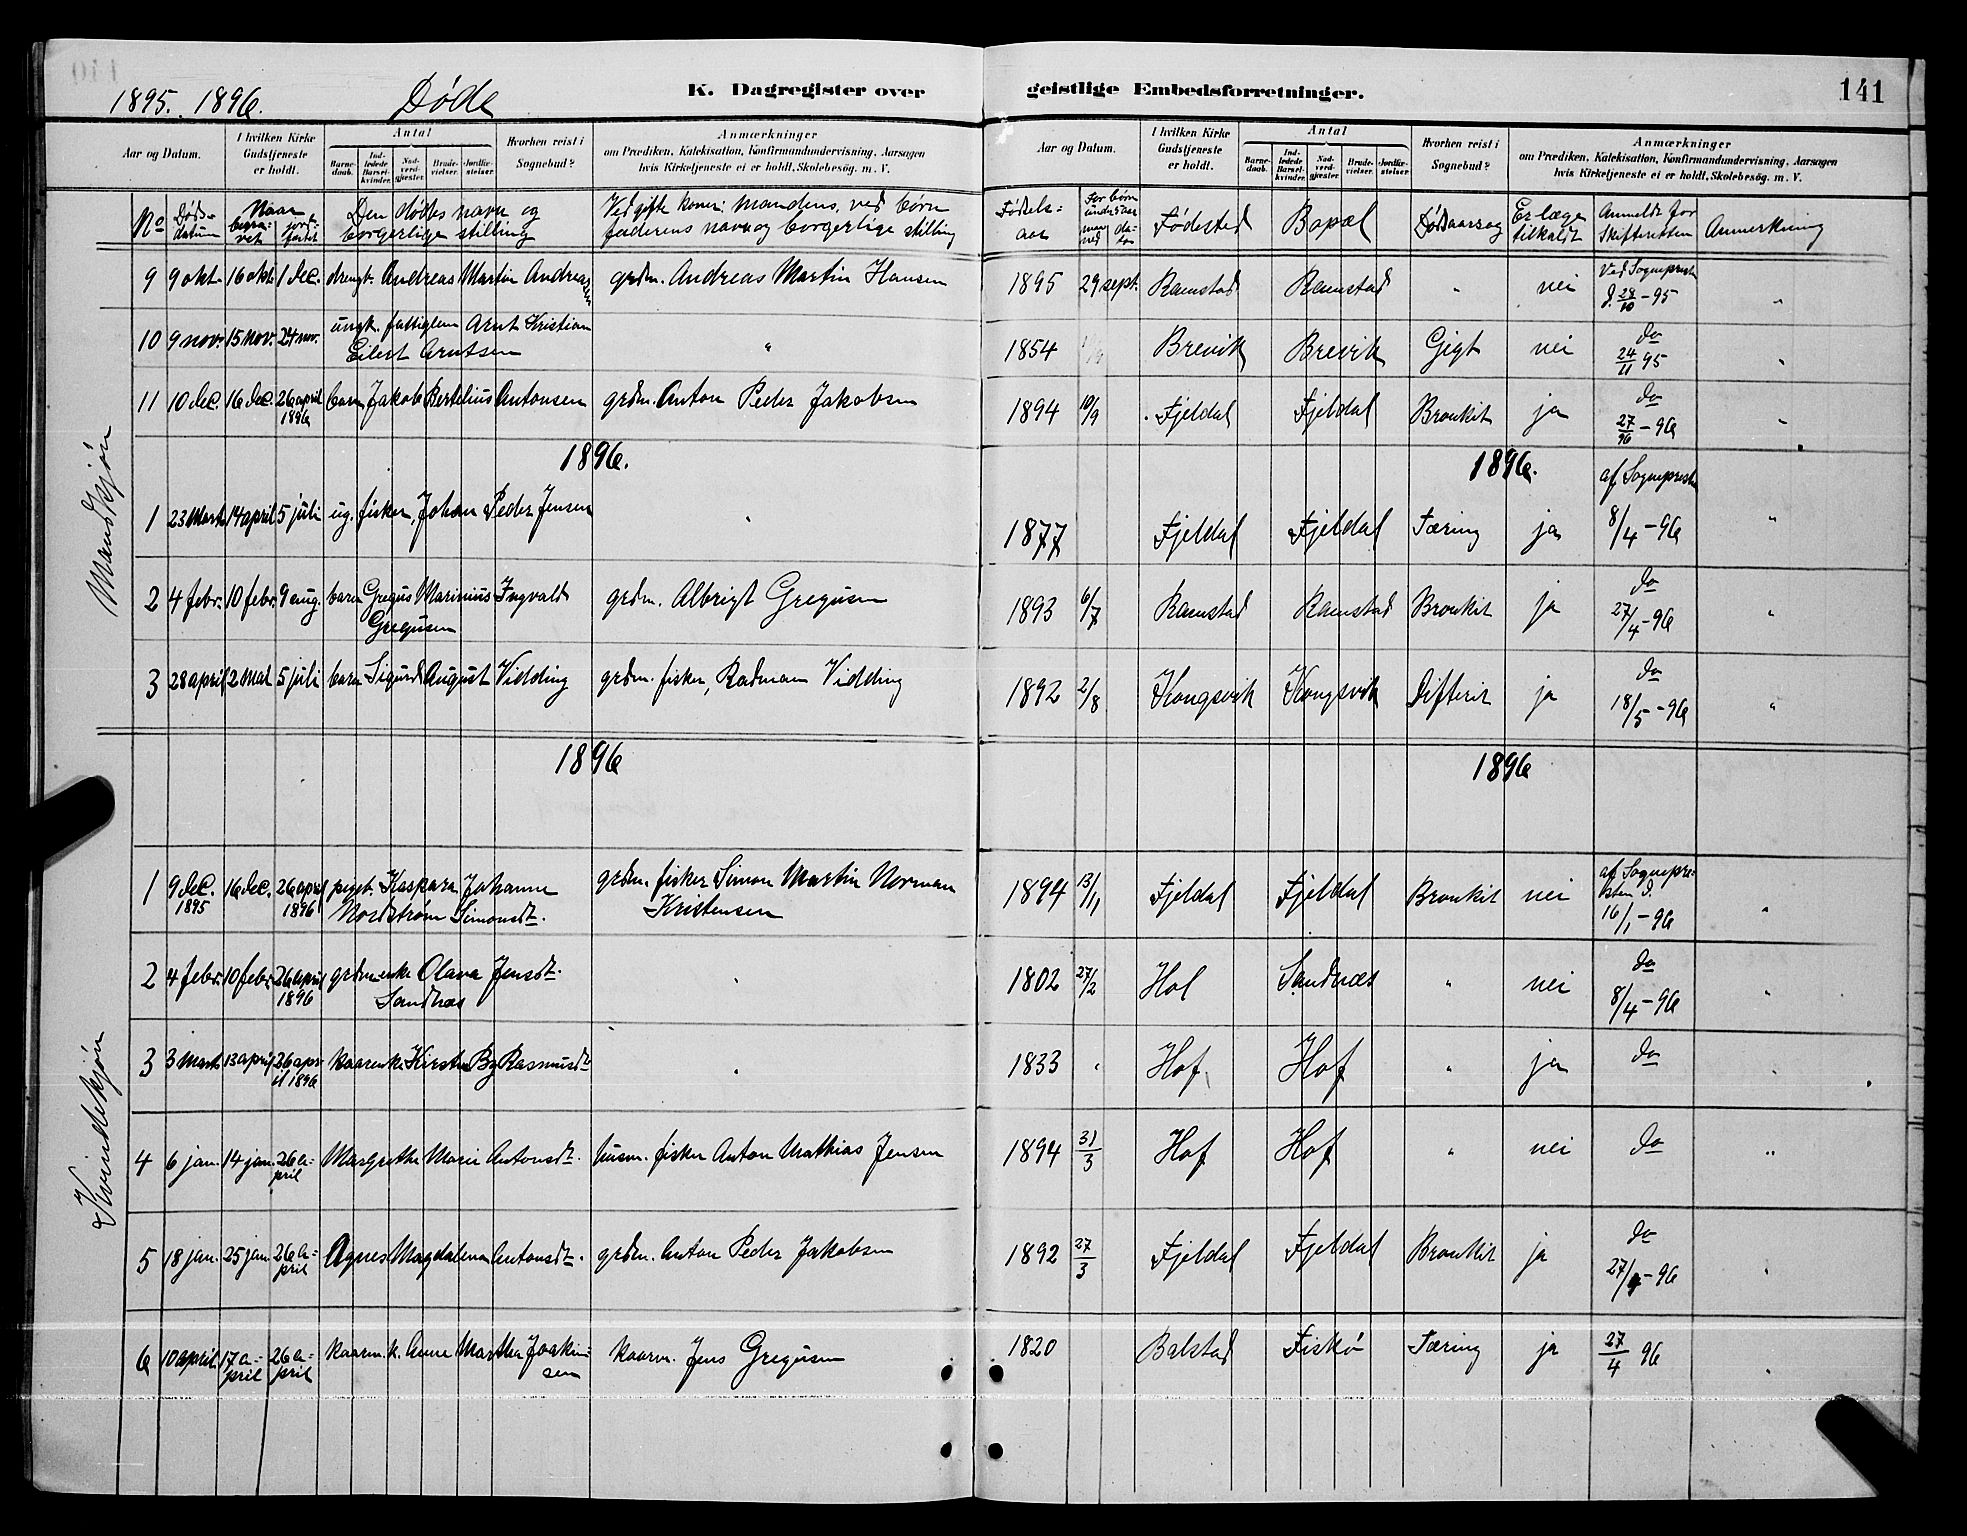 1895. 1896. Døde K. Dagregister over geistlige Embedsforretninger. 141
Aar og Datum. I hvilken Kirke Gudstjeneste er holdt. Antal Barnedaab. Indledede Barselkvinder. Nadverdgjester. Brudevielser. Jordfæstelser. Hvorhen reist i Sognebud? Anmærkninger om Prædiken, Katekisation, Konfirmandundervisning, Aarsagen hvis Kirketjeneste ei er holdt, Skolebesøg. m. V.
Aar og Datum. I hvilken Kirke Gudstjeneste er holdt. Antal Barnedaab. Indledede Barselkvinder. Nadverdgjester. Brudevielser. Jordfæstelser. Hvorhen reist i Sognebud? Anmærkninger om Prædiken, Katekisation, Konfirmandundervisning, Aarsagen hvis Kirketjeneste ei er holdt, Skolebesøg. m. V.
No Dødsdatum Naar begravet jordfestet Den dødes navn og borgerlige stilling Ved gifte koner: mandens, ved børn faderens navn og borgerlige stilling Fødselsaar For børn under aar maaned dato Fødested Bopæl Dødsaarsag Er læge tilkaldt Anmeldt for Skifteretten Anmerkning
Mandkjøn
9 9 okt. 16 okt. 1 dec. drengb. Andreas Martin Andreassen grdm. Andreas Martin Hansen 1895 29 sept. Ramstad Ramstad " nei Ved Sogneprest d. 28/10 - 95 "
10 9 nov. 15 nov. 24 nov. ungk. fattiglem Arnt Kristian Eilert Arntsen " 1854 Brevik Brevik Gigt nei do 24/11 95 "
11 10 dec. 16 dec. 26 april 1896 barn Jakob Bertelius Antonsen grdm. Anton Peder Jakobsen 1894 10/9 Fjeldal Fjeldal Bronkit ja do 27/96 - 96 "
1896. 1896.
1 23 Mart. 14 april 5 juli ug. fisker, Johan Peder Jensen " 1877 Fjeldal Fjeldal Tæring ja af Sogneprest 8/4 - 96 "
2 4 febr. 10 febr. 9 aug. barn Gregus Marinius Ingvald Gregusen grdm. Albrigt Gregusen 1893 6/7 Ramstad Ramstad Bronkit ja do 27/4 - 96 "
3 28 april 2 Mai 5 juli barn Sigurd August Vidding grdm. fisker, Radman Vidding 1892 2/8 Kongsvik Kongsvik Difterit ja do 18/5 - 96 "
1896 1896
Kvindekjøn
1 9 dec. 1895 16 dec. 26 april 1896 pigeb. Kaspara Johanne Nordstrøm Simonsdt. grdm. fisker Simon Martin Norman Kristensen 1894 13/11 Fjeldal Fjeldal Bronkit nei af Sognepresten d. 16/1 - 96 "
2 4 febr. 10 febr. 26 april 1896 grdm enke Olava Jensdt. Sandnæs " 1802 27/2 Hol Sandnæs " nei do 8/4 - 96 "
3 3 Mart. 13 april 26 april 1896 kaarenke Kirsten By Rasmusdt. " 1833 " Hof Hof " ja do "
4 6 jan. 14 jan. 26 april Margrethe Marie Antonsdt. husm. fisker Anton Mathias Jensen 1894 31/3 Hof Hof " nei do "
5 18 jan. 25 jan. 26 april Agnes Magdalena Antonsdt. grdm. Anton Peder Jakobsen 1892 27/3 Fjeldal Fjeldal Bronkit ja do 27/4 - 96 "
6 10 april 17 april 26 april kaarm. k. Anne Martha Joakimsen kaarm. Jens Gregusen 1820 Balstad Fiskø Tæring ja 27/4 96 "